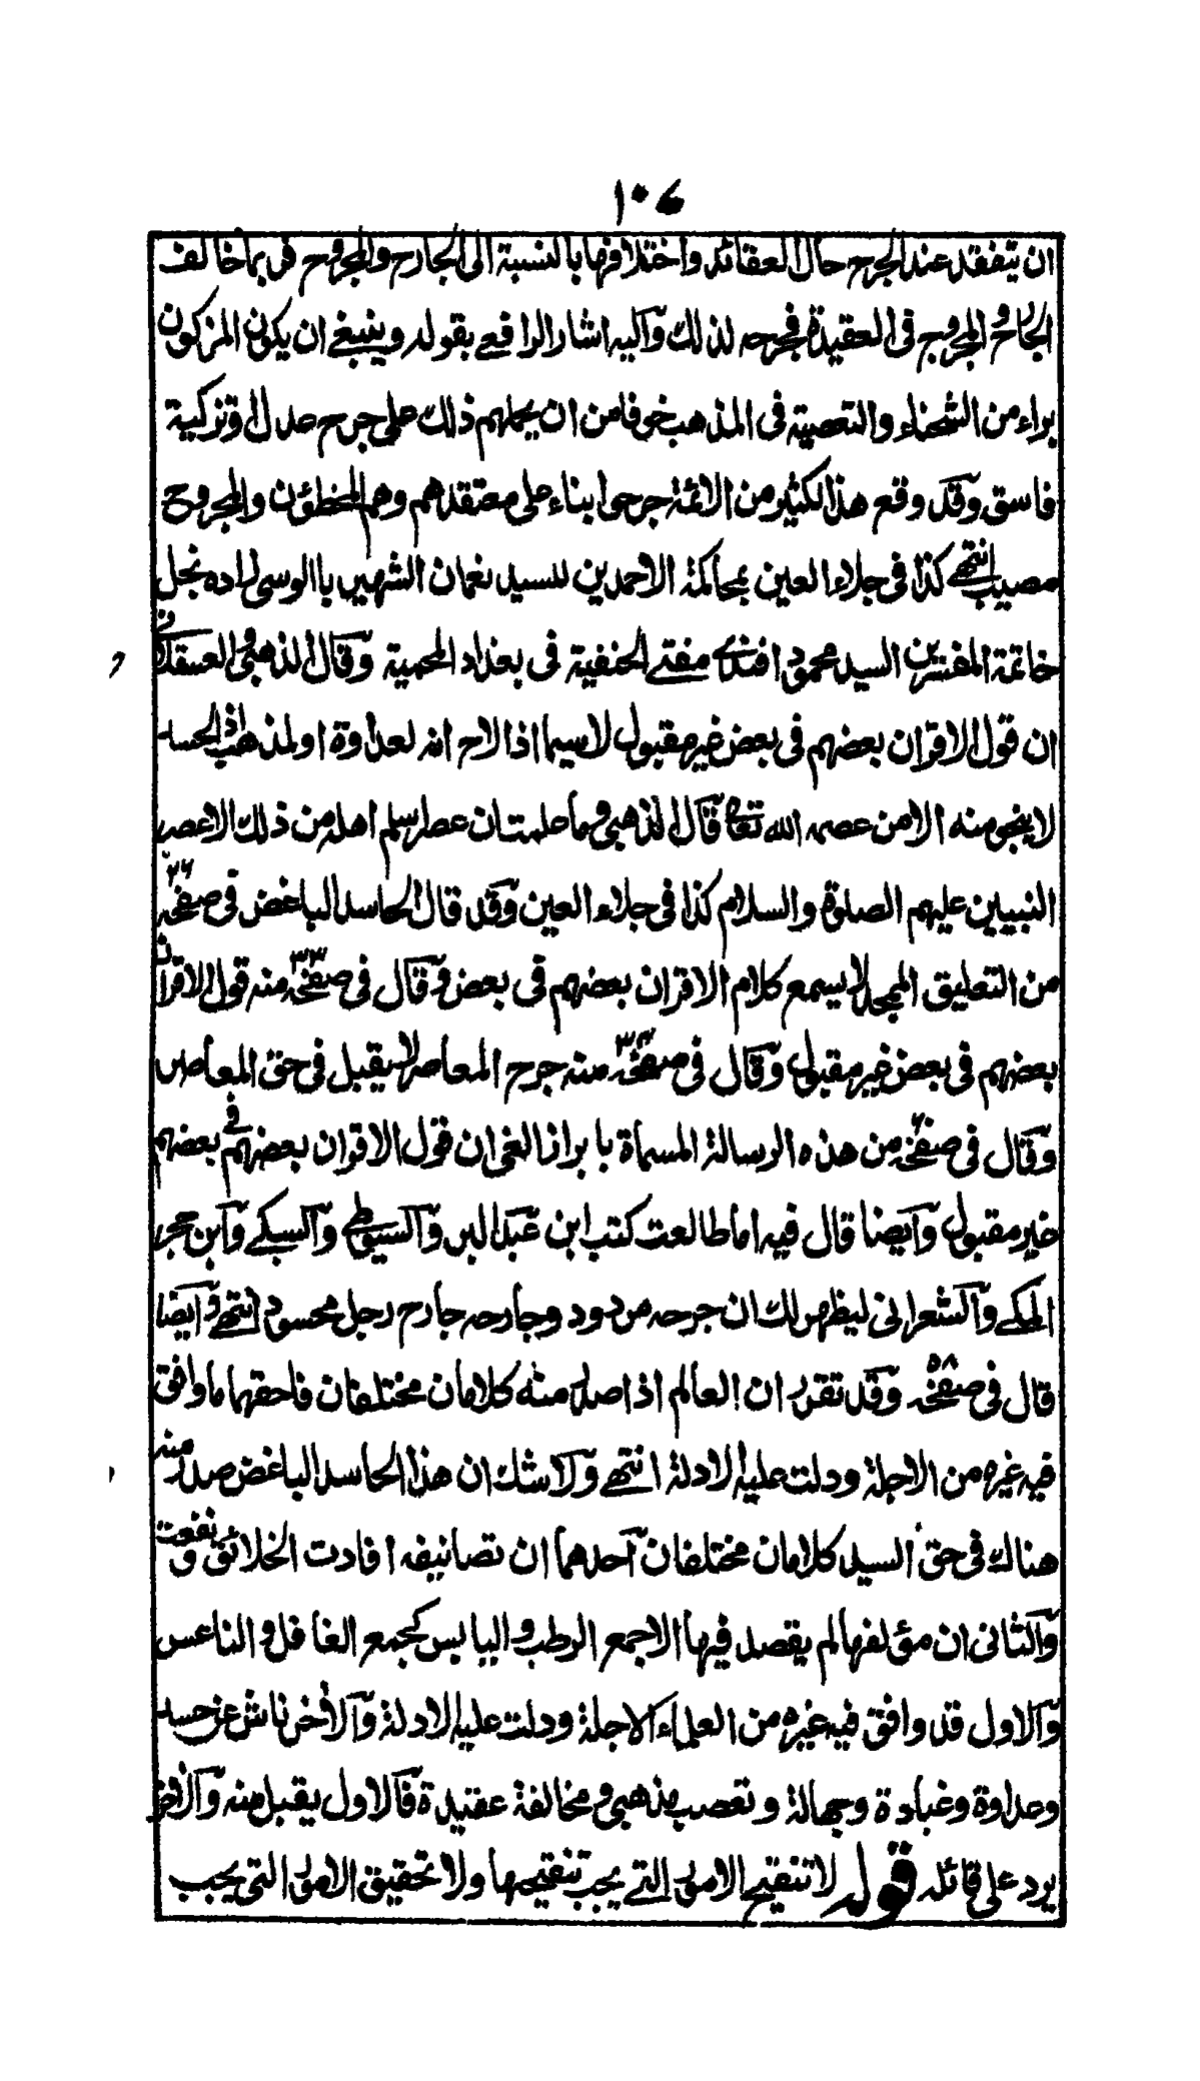 ١٠٦
ان يتفقد عند الجرح حال العقائد واختلافها بالنسبة الى الجارح والمجروح فربما خالف
الجارح والمجروح فى العقيدة فجرحه لذلك واليه اشار الرافعے بقوله وينبغے ان يكون المزكون
براء من الشحناء والتعصبية فى المذهب خوفا من ان يحملهم ذلك على جرح عدل او تزكية
فاسق وقد وقع هذا لكثير من الائمة جرحوا بناء على معتقدهم وهم المخطؤن والمجروح
مصيب انتهے كذا فى جلاء العين بمحاكمة الاحمدين للسيد نعمان الشهير باالوسى زاده نجل
خاتمة المفسرين السيد محمود افندے مفتے الحنفية فى بغداد المحمية وقال الذهبى والعسقلانى
ان قول الاقران بعضهم فى بعض غير مقبول لاسيما اذا لاح انه لعداوة او لمذهب اذ الحسد
لا ينجو منه الا من عصمه الله تعالى قال الذهبى وما علمت ان عصرا سلم اهله من ذلك الا عصر
النبيين عليهم الصلوة والسلام كذا فى جلاء العين وقد قال الحاسد الباغض فى صفحة ٢٦
من التعليق الممجد لا يسمع كلام الاقران بعضهم فى بعض وقال فى صفحة ٣٣ منه قول الاقران
بعضهم فى بعض غير مقبول وقال فى صفحة ٣٤ منه جرح المعاصر لا يقبل فى حق المعاصر
وقال فى صفحة ٦ من هذه الرسالة المسماة بابراز الغى ان قول الاقران بعضهم فى بعضهم
غير مقبول وايضا قال فيه اما طالعت كتب ابن عبد البر والسيوطے والسبكے وابن حجر
المكے والشعرانى ليظهر لك ان جرحه مردود وجارحه جارح رجل محسود انتهے وايضا
قال فى صفحة ٥٨ وقد تقرر ان العالم اذا صدر منه كلامان مختلفان فاحقهما ما وافق
فيه غيره من الاجلة ودلت عليه الادلة انتهے ولا شك ان هذا الحاسد الباغض صدر منه
هناك فى حق السيد كلامان مختلفان احدهما ان تصانيفه افادت الخلائق ونفعت
والثانى ان مؤلفها لم يقصد فيها الا جمع الرطب واليابس كجمع الغافل والناعس
والاول قد وافق فيه غيره من العلماء الاجلة ودلت عليه الادلة والآخر ناش عن حسد
وعداوة وغباوة وجهالة وتعصب مذهبى ومخالفة عقيدة فالاول يقبل منه والآخر
يرد على قائله قوله لا تنقيح الامور التے يجب تنقيحها ولا تحقيق الامور التى يجب